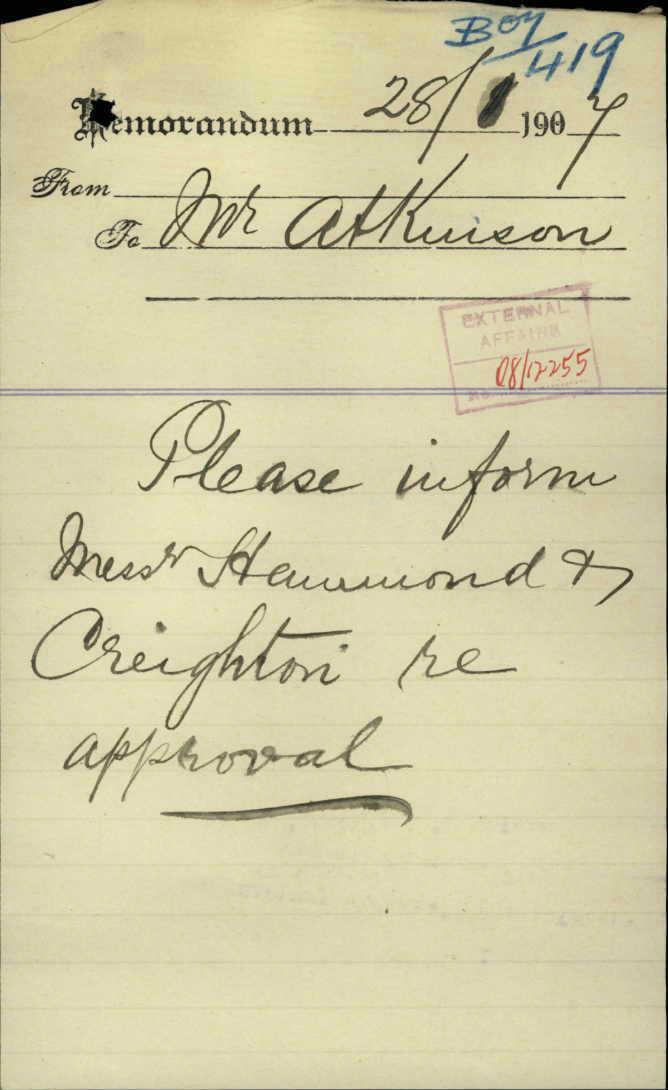 Boy
419
Memorandum 28/ 1907
From
To Mr Atkinson
EXTERNAL
AFFAIRS
No. 08/12255
Please inform
Messrs Hammond &
Creighton re
approval